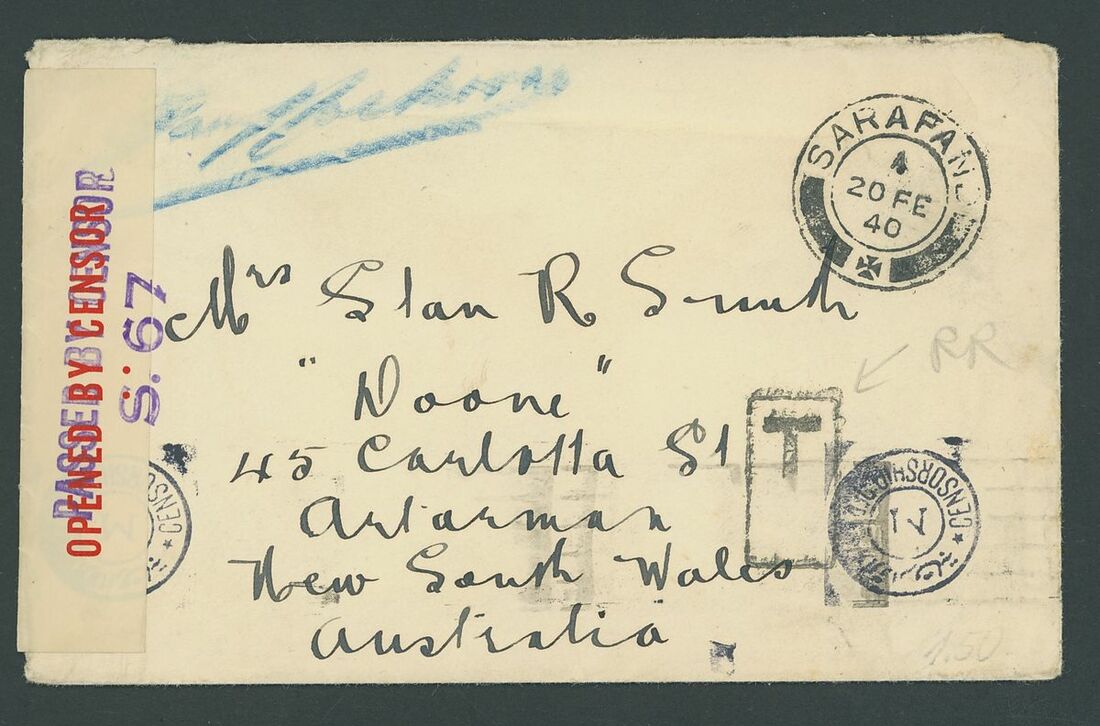 SARAFAND
A
20 FE
40
OPENED BY CENSOR
PASSED BY CENSOR
S. 67
Mrs Stan R Smith
"Doone"
45 Carlotta St
Artarmon
New South Wales
Australia
RR
T
CENSORSHIP
CENSO
1.50